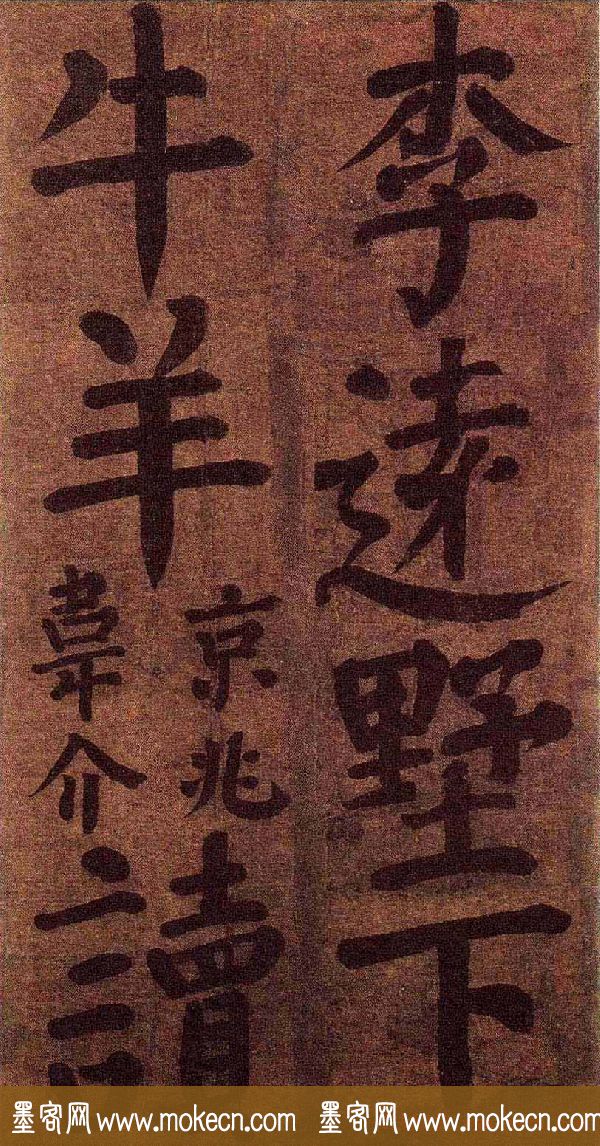 李遠墅下
牛羊
京兆
韋介
讀
墨客网 www.mokecn.com 墨客网 www.mokecn.com